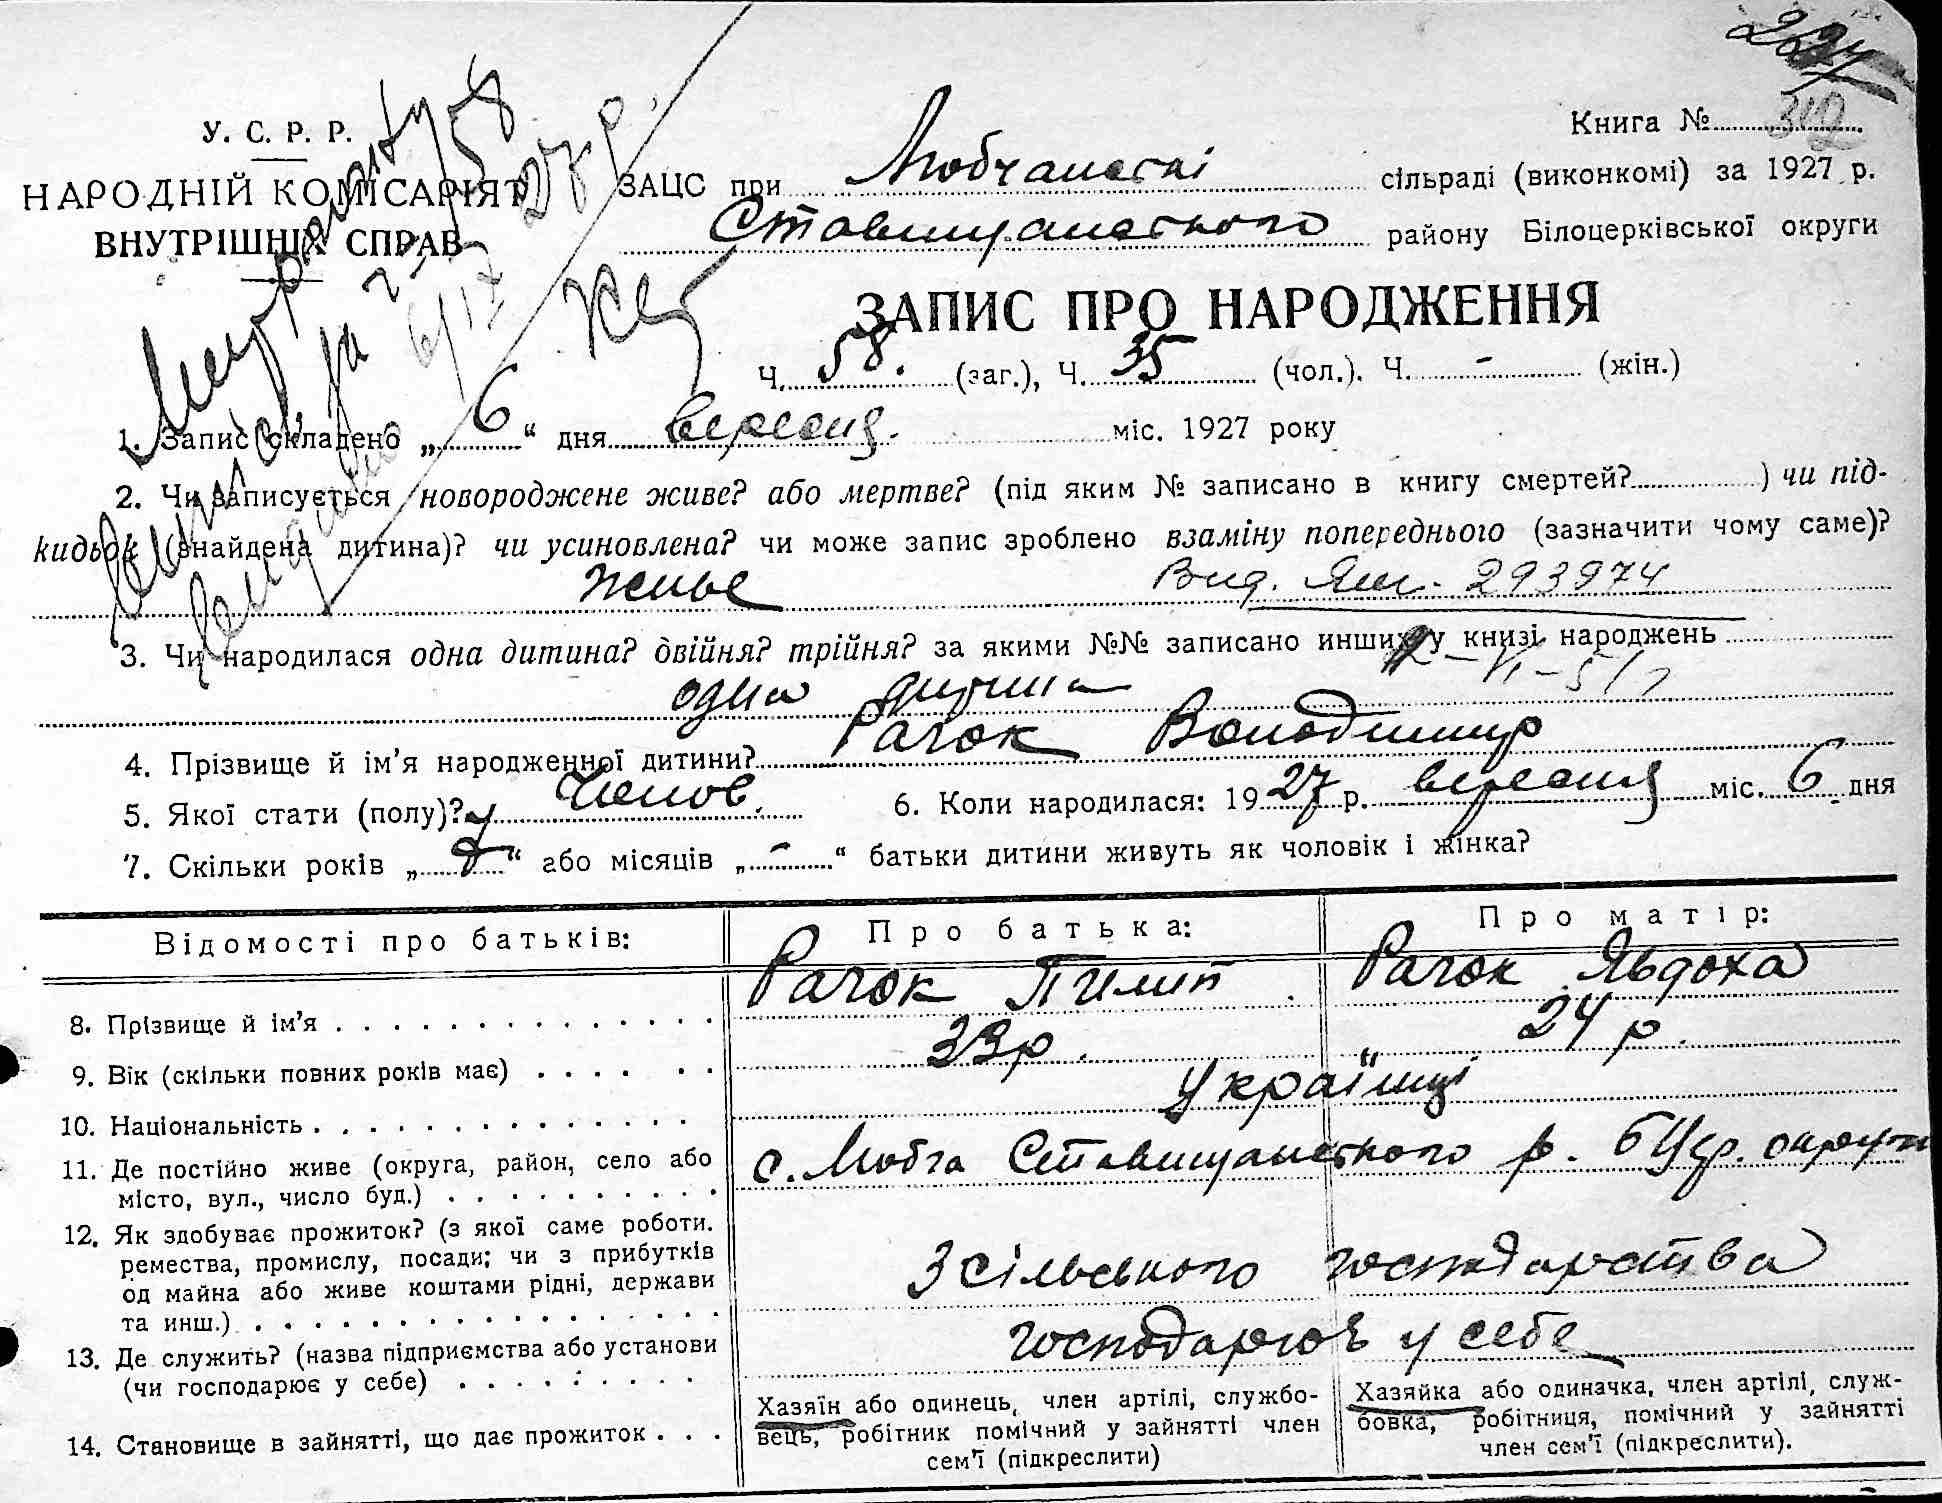 У. С. Р. Р.
НАРОДНІЙ КОМІСАРІЯТ
ВНУТРІШНІХ СПРАВ
Книга № 312
ЗАЦС при Любчанські сільраді (виконкомі) за 1927 р.
Ставищанського району Білоцерківської округи
ЗАПИС ПРО НАРОДЖЕННЯ
Ч. 58. (заг.), Ч. 35 (чол.). Ч. - (жін.)
1. Запис складено „ 6 “ дня вересня. міс. 1927 року
2. Чи записується новороджене живе? або мертве? (під яким № записано в книгу смертей? ) чи під-
кидьок (знайдена дитина)? чи усиновлена? чи може запис зроблено взаміну попереднього (зазначити чому саме)?
живе 293974
3. Чи народилася одна дитина? двійня? трійня? за якими №№ записано инших у книзі народжень
одна дитина
4. Прізвище й ім’я народженної дитини? Рачок Володимир
5. Якої стати (полу)? Чолов. 6. Коли народилася: 1927 р. вересня міс. 6 дня
7. Скільки років „ “ або місяців „ - “ батьки дитини живуть як чоловік і жінка?
Відомості про батьків: Про батька: Про матір:
8. Прізвище й ім’я . . . . . . . . . . . . . . Рачок Пилип Рачок Явдоха
9. Вік (скільки повних років має) . . . . . . 33 р. 24 р.
10. Національність . . . . . . . . . . . . . . Українці
11. Де постійно живе (округа, район, село або
місто, вул., число буд.) . . . . . . . . . . с. Любча Ставищанського р. БЦер. округи
12. Як здобуває прожиток? (з якої саме роботи.
ремества, промислу, посади; чи з прибутків
од майна або живе коштами рідні, держави
та инш.) . . . . . . . . . . . . . . . . З сільського господарства
13. Де служить? (назва підприємства або установи
(чи господарює у себе) . . . . . . . . . . господарює у себе
14. Становище в зайнятті, що дає прожиток . . .
Хазяїн або одинець, член артілі, службо-
вець, робітник помічний у зайнятті член
сем’ї (підкреслити)
Хазяйка або одиначка, член артілі, служ-
бовка, робітниця, помічний у зайнятті
член сем’ї (підкреслити).